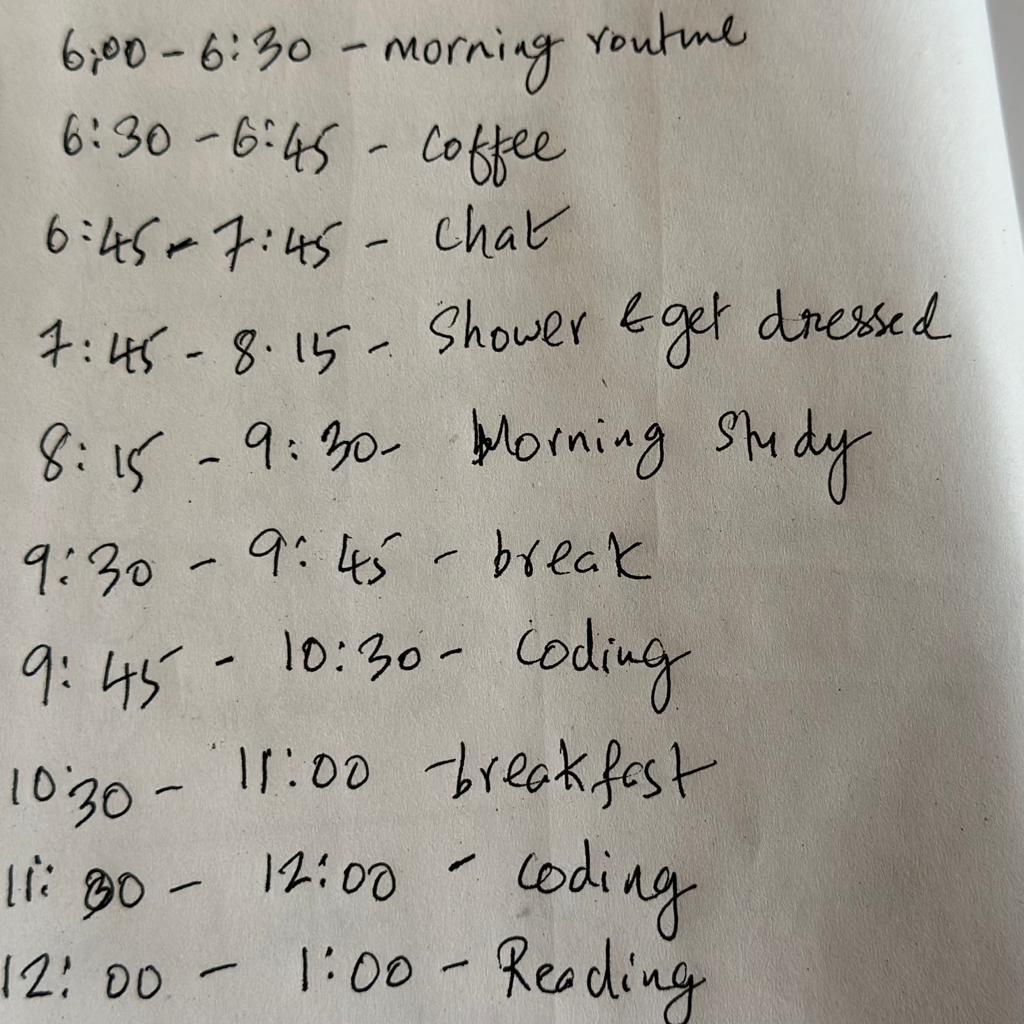 6:00 - 6:30 - morning routine
6:30 - 6:45 - Coffee
6:45 - 7:45 - Chat
7:45 - 8.15 - Shower & get dressed
8:15 - 9:30 - Morning Study
9:30 - 9:45 - break
9:45 - 10:30 - Coding
10:30 - 11:00 - breakfast
11:00 - 12:00 - Coding
12:00 - 1:00 - Reading